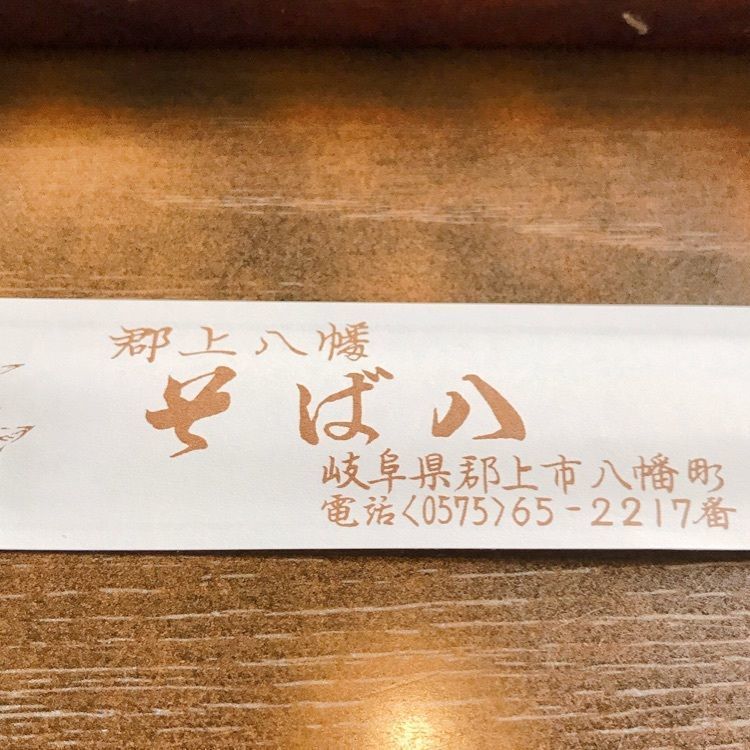 郡上八幡
そば八
岐阜県郡上市八幡町
電話<0575>65-2217番